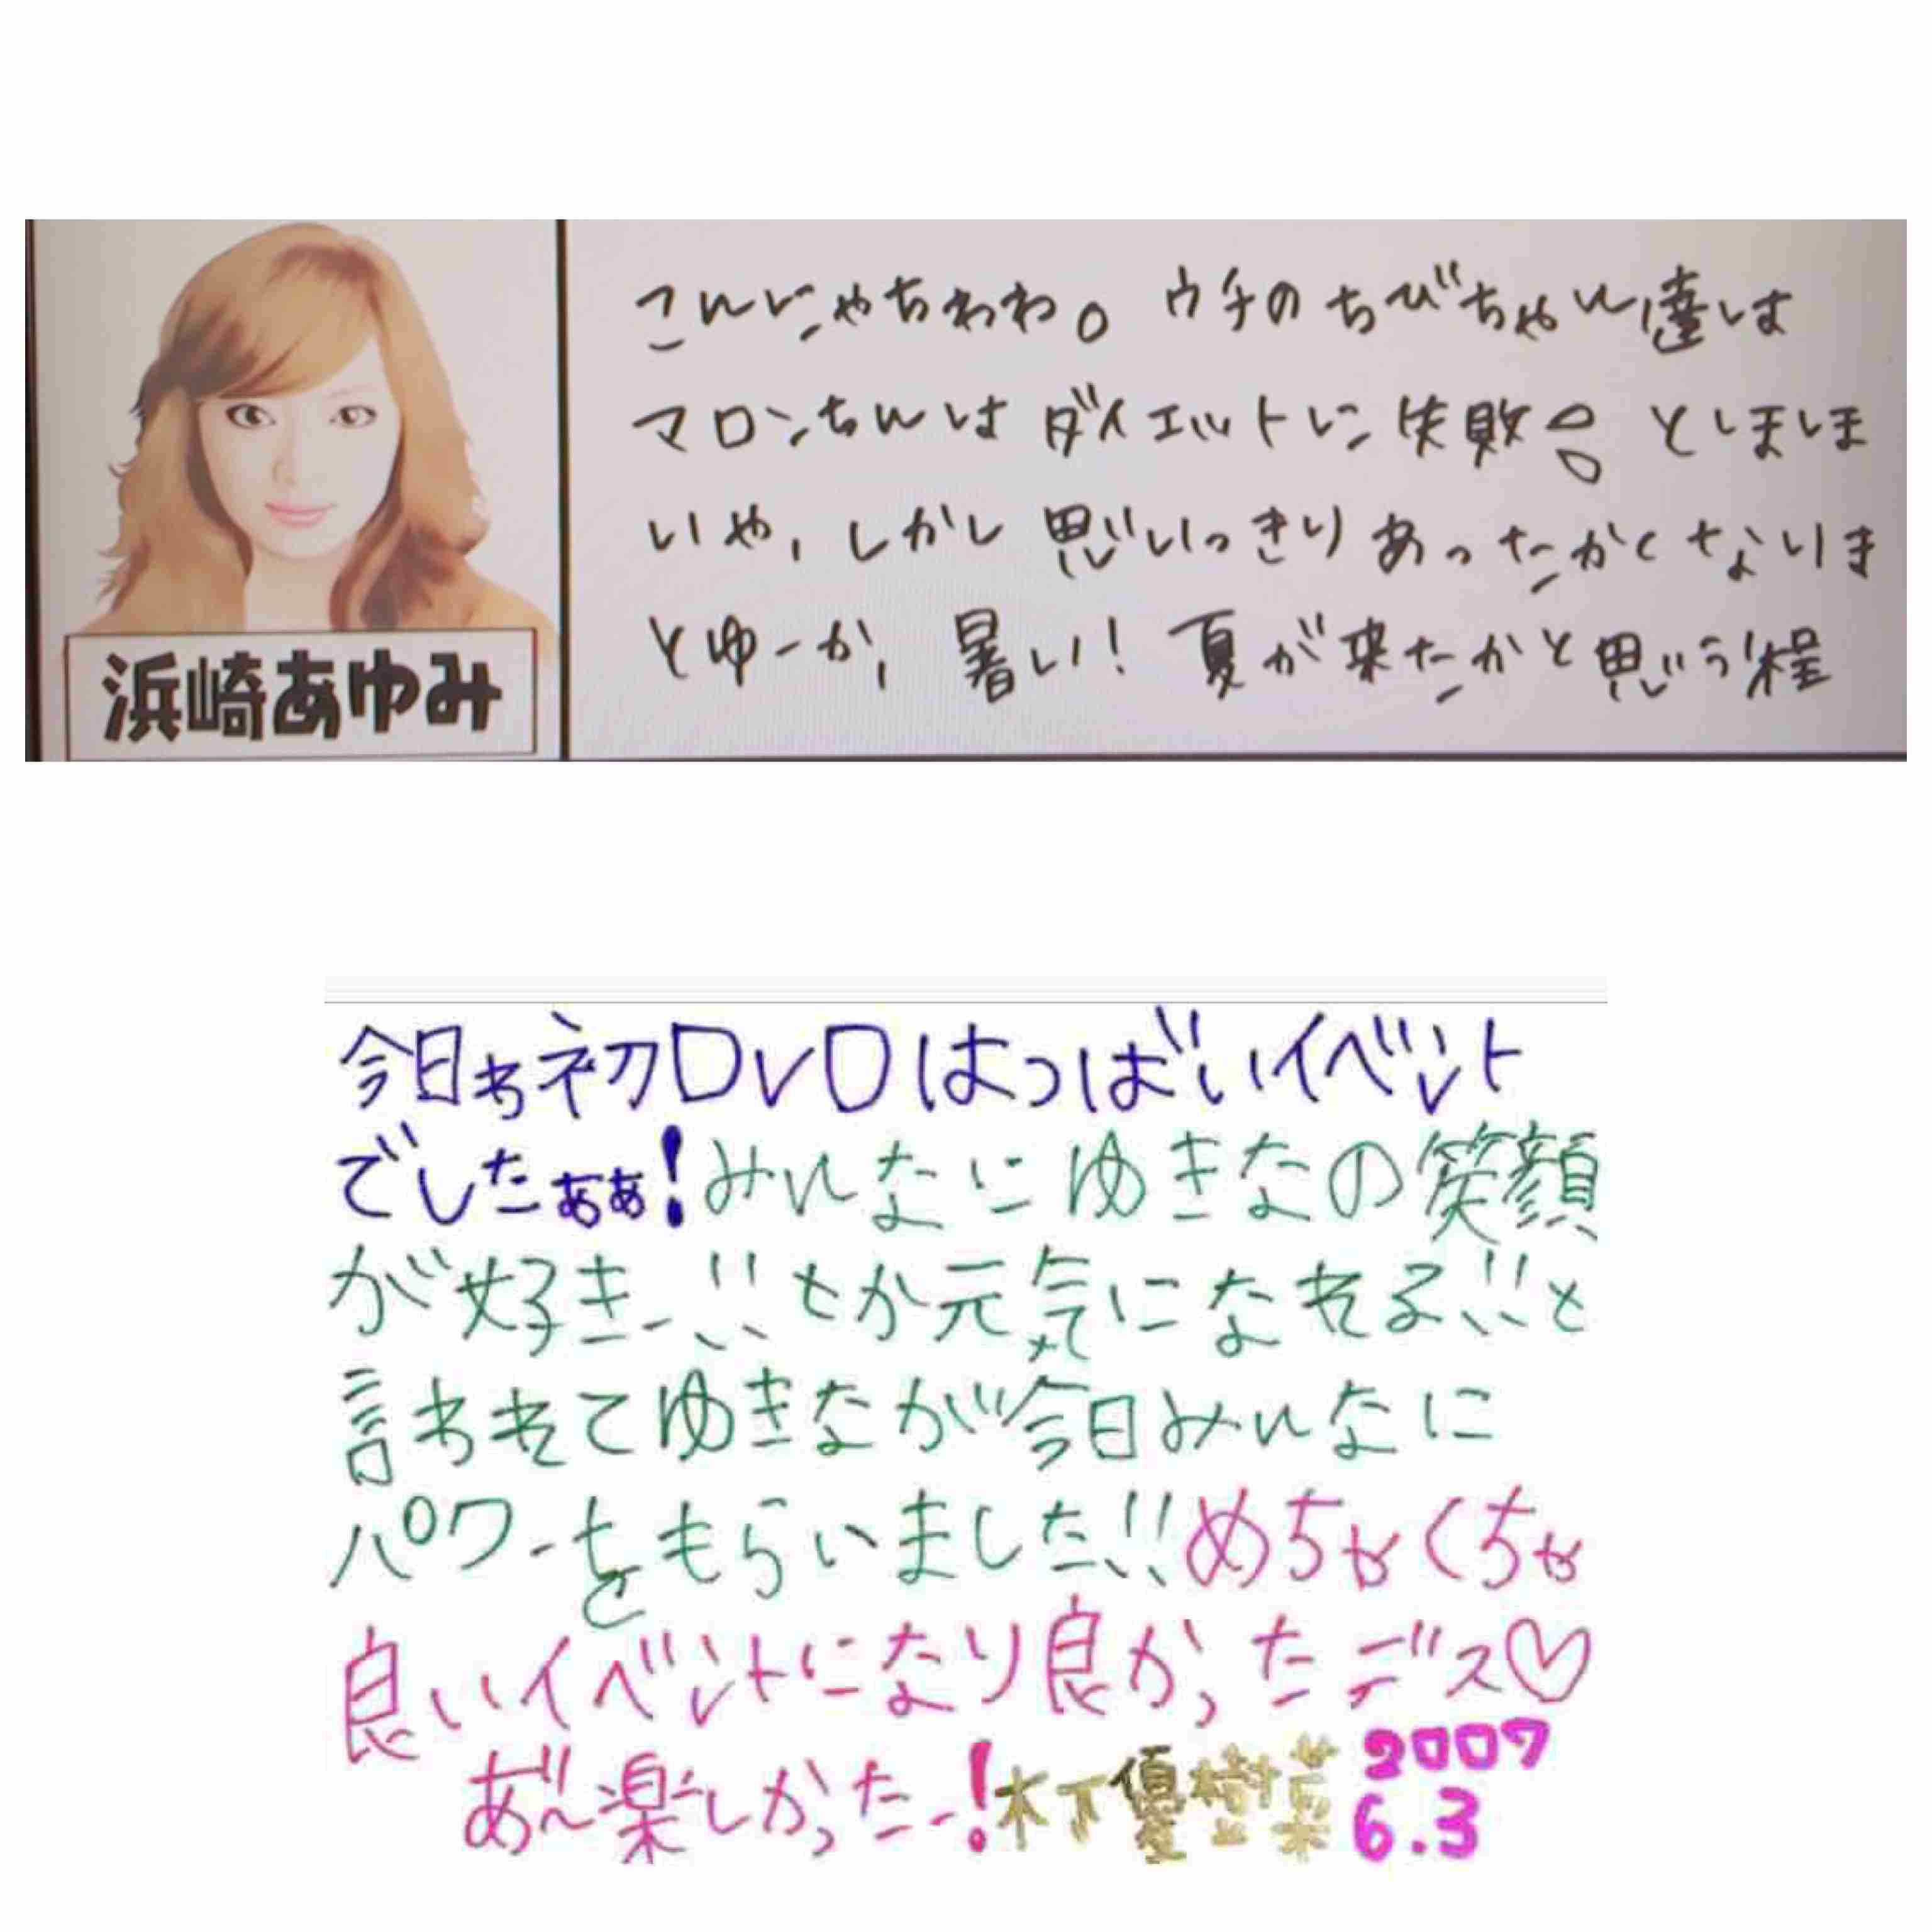 こんにゃちわわ。ウチのちびちゃん達は
マロンちんはダイエットに失敗。。としましま
いや、しかし思いっきりあったかくないま
とゆーか、暑い！夏が来たかと思う程
浜崎あゆみ
今日ゎ初DVDはつばいイベント
でしたぁぁ！みんなにゆきなの笑顔
が好きー!!とか元気になれる!!と
言われてゆきなが今日みんなに
パワーをもらいました!!めちゃくちゃ
良いイベントになり良かったデス♡
あ゛〜楽しかったー！木下優樹菜 2007
6.3